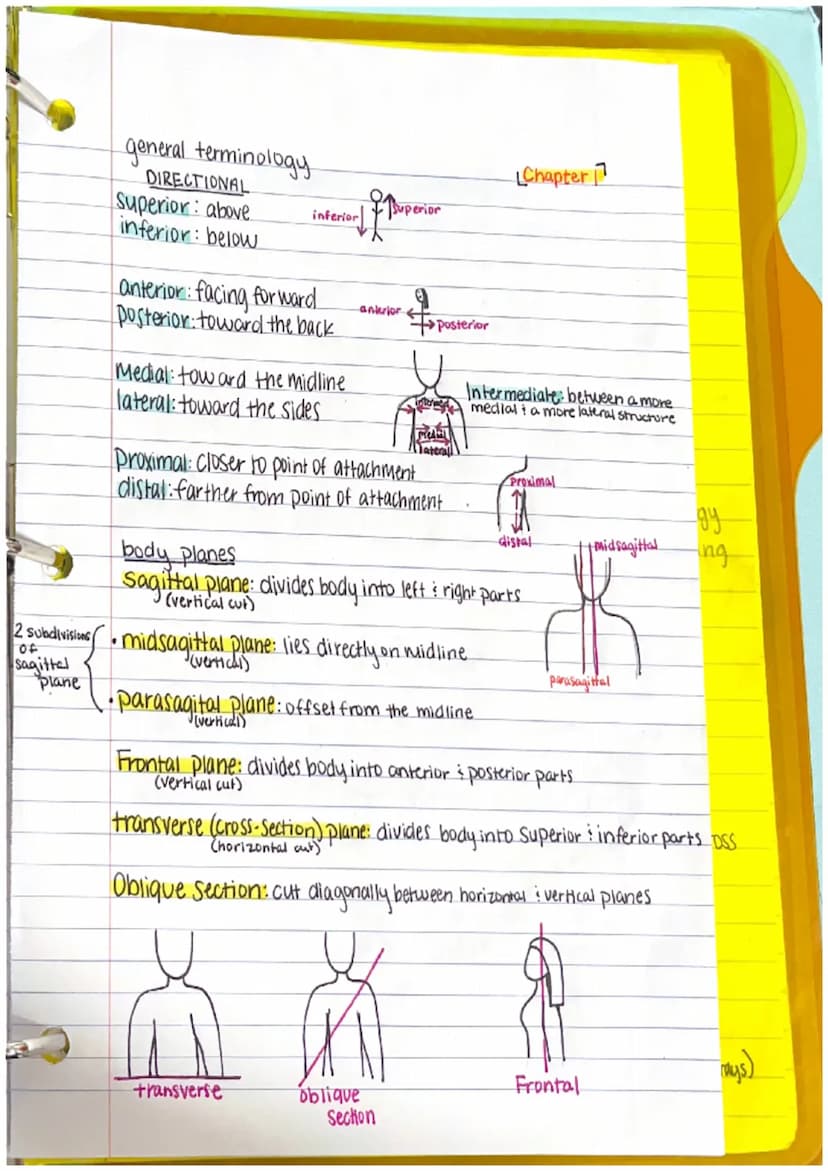 general terminology
Chapter 1
DIRECTIONAL
superior: above
inferior: below
inferior superior
anterior: facing forward
posterior: toward the back
anterior
posterior
Medial: toward the midline
lateral: toward the sides
Intermediate: between a more
medial & a more lateral structure
Medial
lateral
Proximal: closer to point of attachment
distal: farther from point of attachment
proximal
distal
body planes
midsagittal
parasagittal
Sagittal plane: divides body into left & right parts
(vertical cut)
2 subdivisions
of
sagittal
plane
• midsagittal plane: lies directly on midline
(vertical)
• parasagital plane: offset from the midline
(vertical)
Frontal plane: divides body into anterior & posterior parts
(vertical cut)
transverse (cross-section) plane: divides body into superior & inferior parts
(horizontal cut)
Oblique section: cut diagonally between horizontal & vertical planes
transverse
oblique
section
Frontal